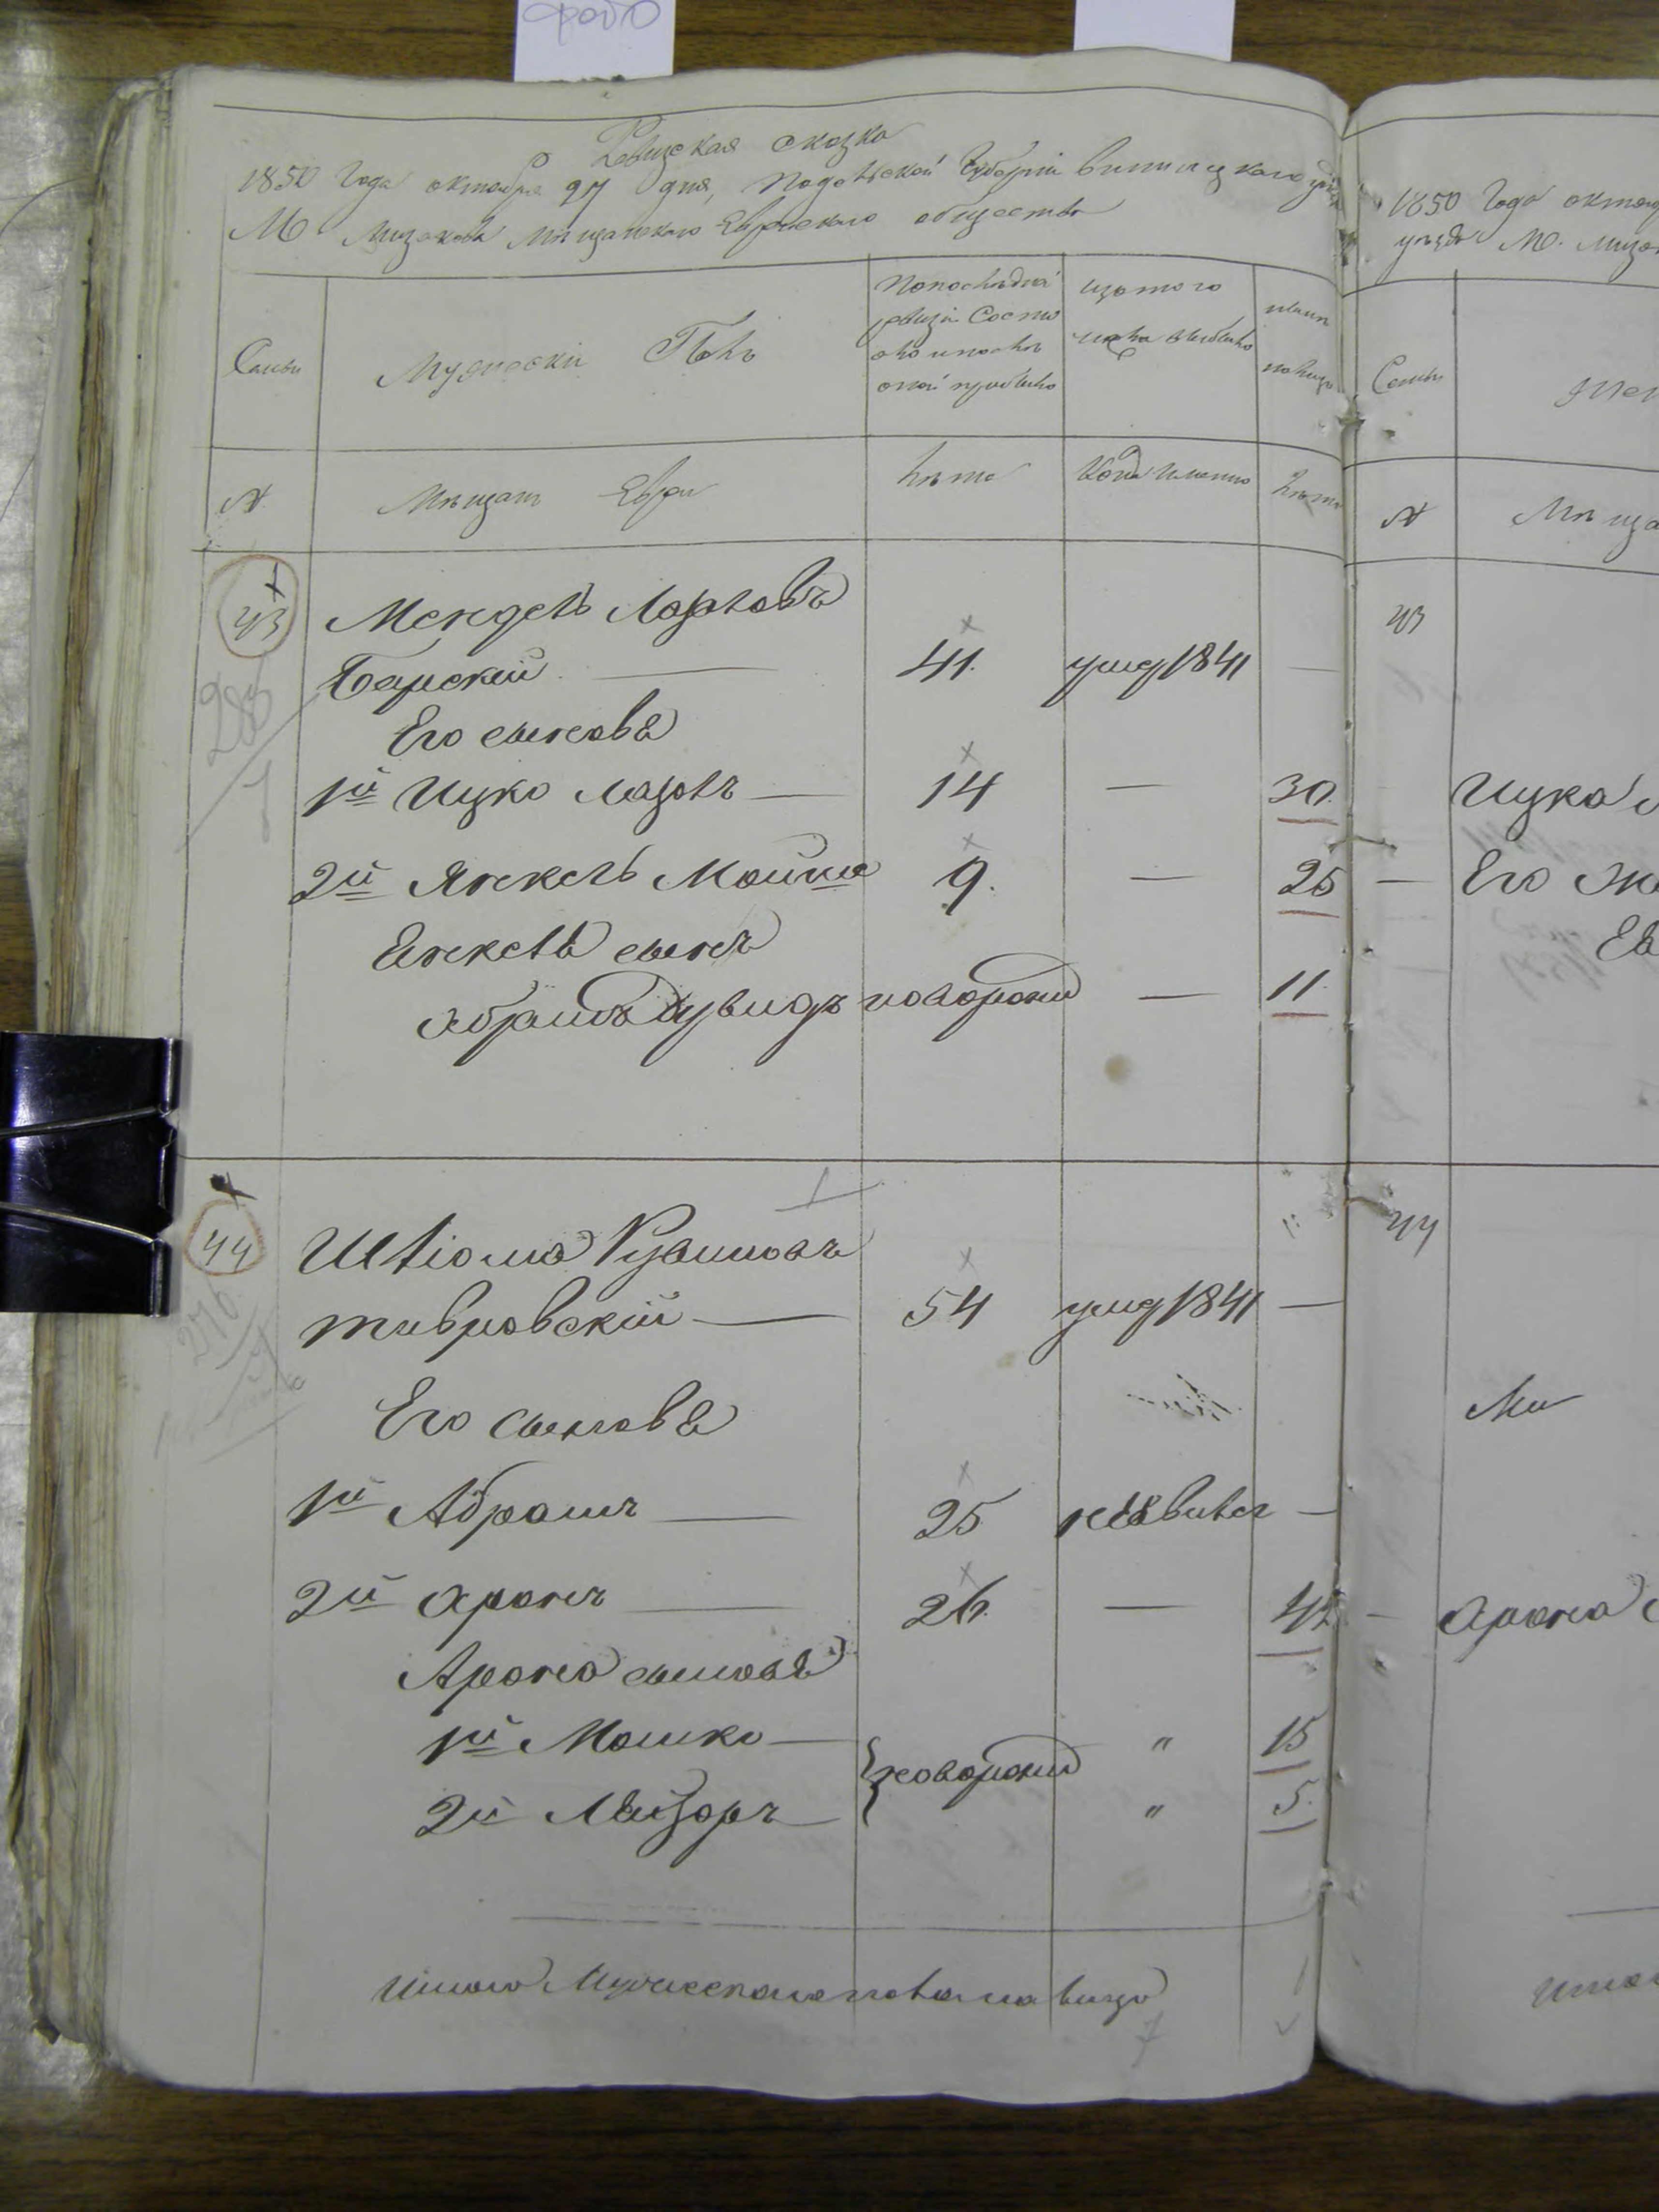 фото
Ревизская сказка
1850 Года октября 27 дня, Подольской Губерніи Винницкаго уѣзда
М. Мизякова Мѣщанскаго Еврейскаго общества
Семьи
Мужескій Полъ
По последней ревизіи Состояло и послѣ оной прибыло
Изъ того числа выбыло
нынѣ на лицо
№
Мѣщане Евреи
Лѣта
Когда именно
Лѣта
43
Мендель Лазаровъ
Барскій — 41. умер 1841 —
Его сыновья
1й Ицко Лазарь — 14 — 30.
2й Янкель Мошко 9. — 25
Янкеля сынъ
Абрамъ Дувидъ новорожн — 11.
44
Шліома Рувиновъ
тивровскій — 54 умер 1841 —
Его сыновья
1й Абрамъ — 25 неявился —
2й Аронъ — 26. — 42
Арона сыновья
1й Мошко — новорожн " 15
2й Лейзоръ — " 5.
Итого Мужескаго пола на лицо
7
1850 Года октяб
уѣзда М. Мизя
Семьи
Жен
№
Мѣща
43
Ицка
Его же
44
Арона
Итог